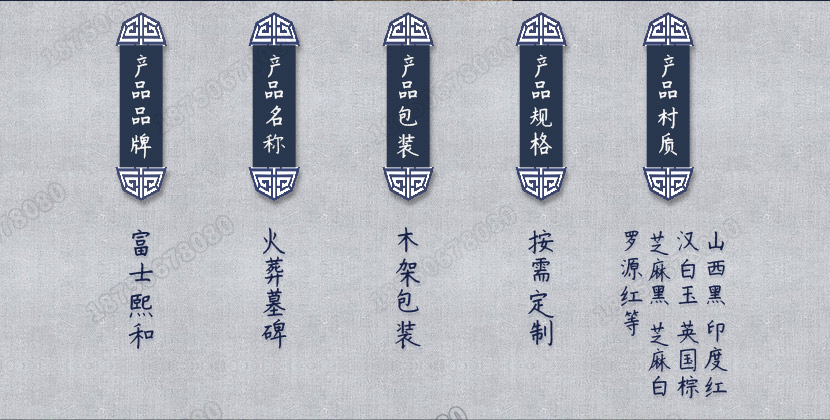 产品品牌
富士熙和
产品名称
火葬墓碑
产品包装
木架包装
产品规格
按需定制
产品村质
山西黑 印度红
汉白玉 英国棕
芝麻黑 芝麻白
罗源红等